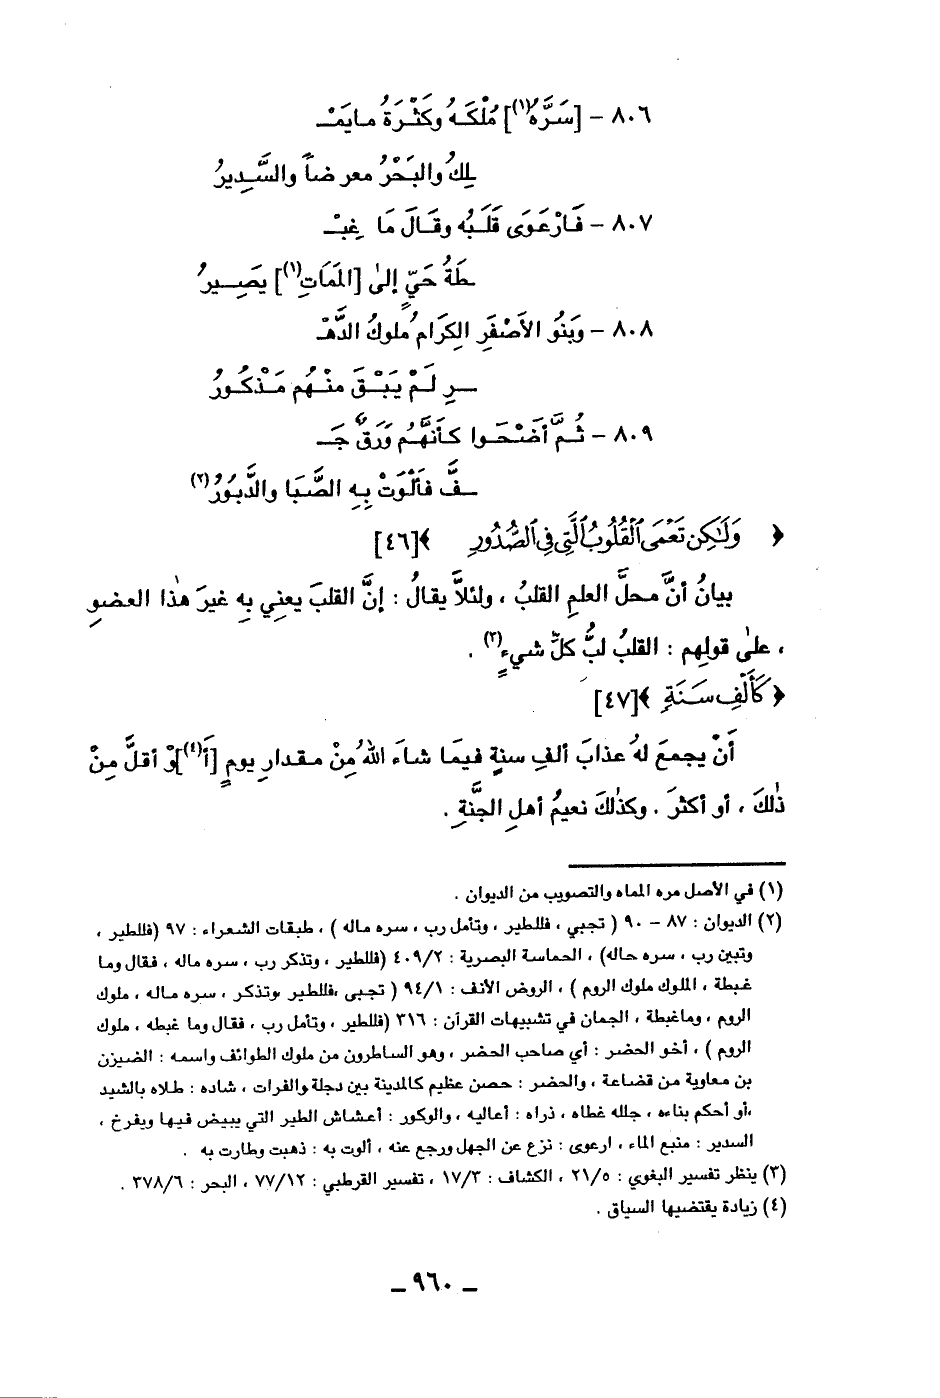 ٨٠٦ – [سَرَّهُ(١)] مُلْكَهُ وكَثْرَةُ مـايَمْـ
لِكُ والبَحْرُ معرضاً والسَّديرُ
٨٠٧ – فَـارْعَوَى قَلَبُه وقَـالَ مَا غِبْـ
ـطَةُ حَيٍّ إلىٰ [المَمَاتِ(١)] يَصِيرُ
٨٠٨ – وبَنُو الأَصْفَرِ الكِرَامُ ملوكُ الدَّهْـ
ـرِ لَمْ يَبْقَ منْهُم مَذْكُورُ
٨٠٩ – ثُمَّ أضْحَوا كأنَّهُم وَرَقٌ جَـ
ـفَّ فألْوَتْ بِهِ الصَّبَا والدَّبُورُ(٢)
﴿ وَلَٰكِن تَعْمَى ٱلْقُلُوبُ ٱلَّتِى فِى ٱلصُّدُورِ ﴾[٤٦]
بيانُ أنَّ محلَّ العلمِ القلبُ ، ولئلاَّ يقالُ : إنَّ القلبَ يعنِي بِه غيرَ هٰذا العضوِ
، علىٰ قولِهم : القلبُ لبُّ كلِّ شيءٍ(٣) .
﴿كَأَلْفِ سَنَةٍ ﴾[٤٧]
أنْ يجمعَ لهُ عذابَ ألفِ سنةٍ فيمَا شاءَ اللهُ مِنْ مقدارِ يومٍ [أَ(٤)]وْ أقلَّ مِنْ
ذٰلكَ ، أو أكثرَ . وكذٰلكَ نعيمُ أهلِ الجنَّةِ .
(١) في الأصل مره الماه والتصويب من الديوان .
(٢) الديوان : ٨٧ – ٩٠ ( تجبي ، فللطير ، وتأمل رب ، سره ماله ) ، طبقات الشعراء : ٩٧ (فللطير ،
وتبين رب ، سره حاله) ، الحماسة البصرية : ٤٠٩/٢ (فللطير ، وتذكر رب ، سره ماله ، فقال وما
غبطة ، الملوك ملوك الروم ) ، الروض الأنف : ٩٤/١ ( تجبى ،فللطير ،وتذكر ، سره ماله ، ملوك
الروم ، وماغبطة ، الجمان في تشبيهات القرآن : ٣١٦ (فللطير ، وتأمل رب ، فقال وما غبطه ، ملوك
الروم ) ، أخو الحضر : أي صاحب الحضر ، وهو الساطرون من ملوك الطوائف واسمه : الضيزن
بن معاوية من قضاعة ، والحضر : حصن عظيم كالمدينة بين دجلة والفرات ، شاده : طلاه بالشيد
،أو أحكم بناءه ، جلله غطاه ، ذراه : أعاليه ، والوكور : أعشاش الطير التي يبيض فيها ويفرخ ،
السدير : منبع الماء ، ارعوى : نزع عن الجهل ورجع عنه ، ألوت به : ذهبت وطارت به .
(٣) ينظر تفسير البغوي : ٢١/٥ ، الكشاف : ١٧/٣ ، تفسير القرطبي : ٧٧/١٢ ، البحر : ٣٧٨/٦ .
(٤) زيادة يقتضيها السياق .
– ٩٦٠ –